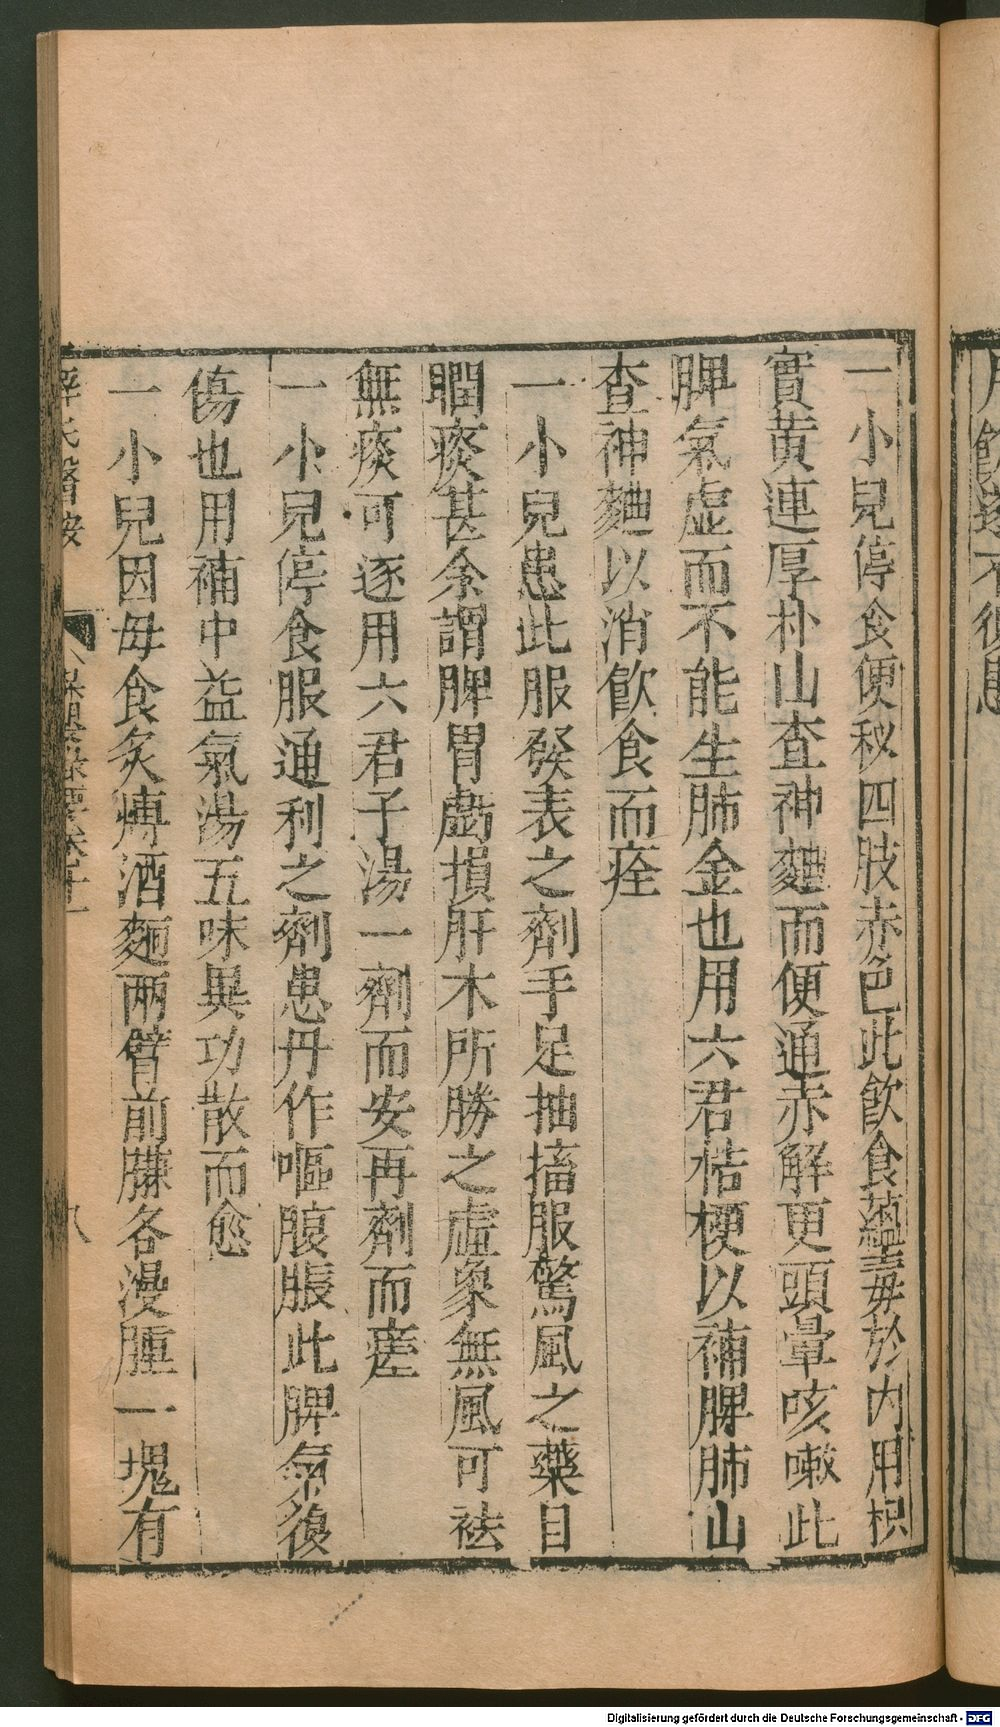 一小兒停食便秘四肢赤色此飲食蘊毒於內用枳
實黃連厚朴山查神麯而便通赤解更頭暈咳嗽此
脾氣虛而不能生肺金也用六君桔梗以補脾肺山
查神麯以消飲食而痊
一小兒患此服發表之劑手足抽搐服驚風之藥目
瞤痰甚余謂脾胃虧損肝木所勝之虛象無風可祛
無痰可逐用六君子湯一劑而安再劑而瘥
一小兒停食服通利之劑患丹作嘔腹脹此脾氣復
傷也用補中益氣湯五味異功散而愈
一小兒因母食炙煿酒麵兩臂前臁各漫腫一塊有
薛氏醫按
保嬰撮要卷十一
八
Digitalisierung gefördert durch die Deutsche Forschungsgemeinschaft - DFG